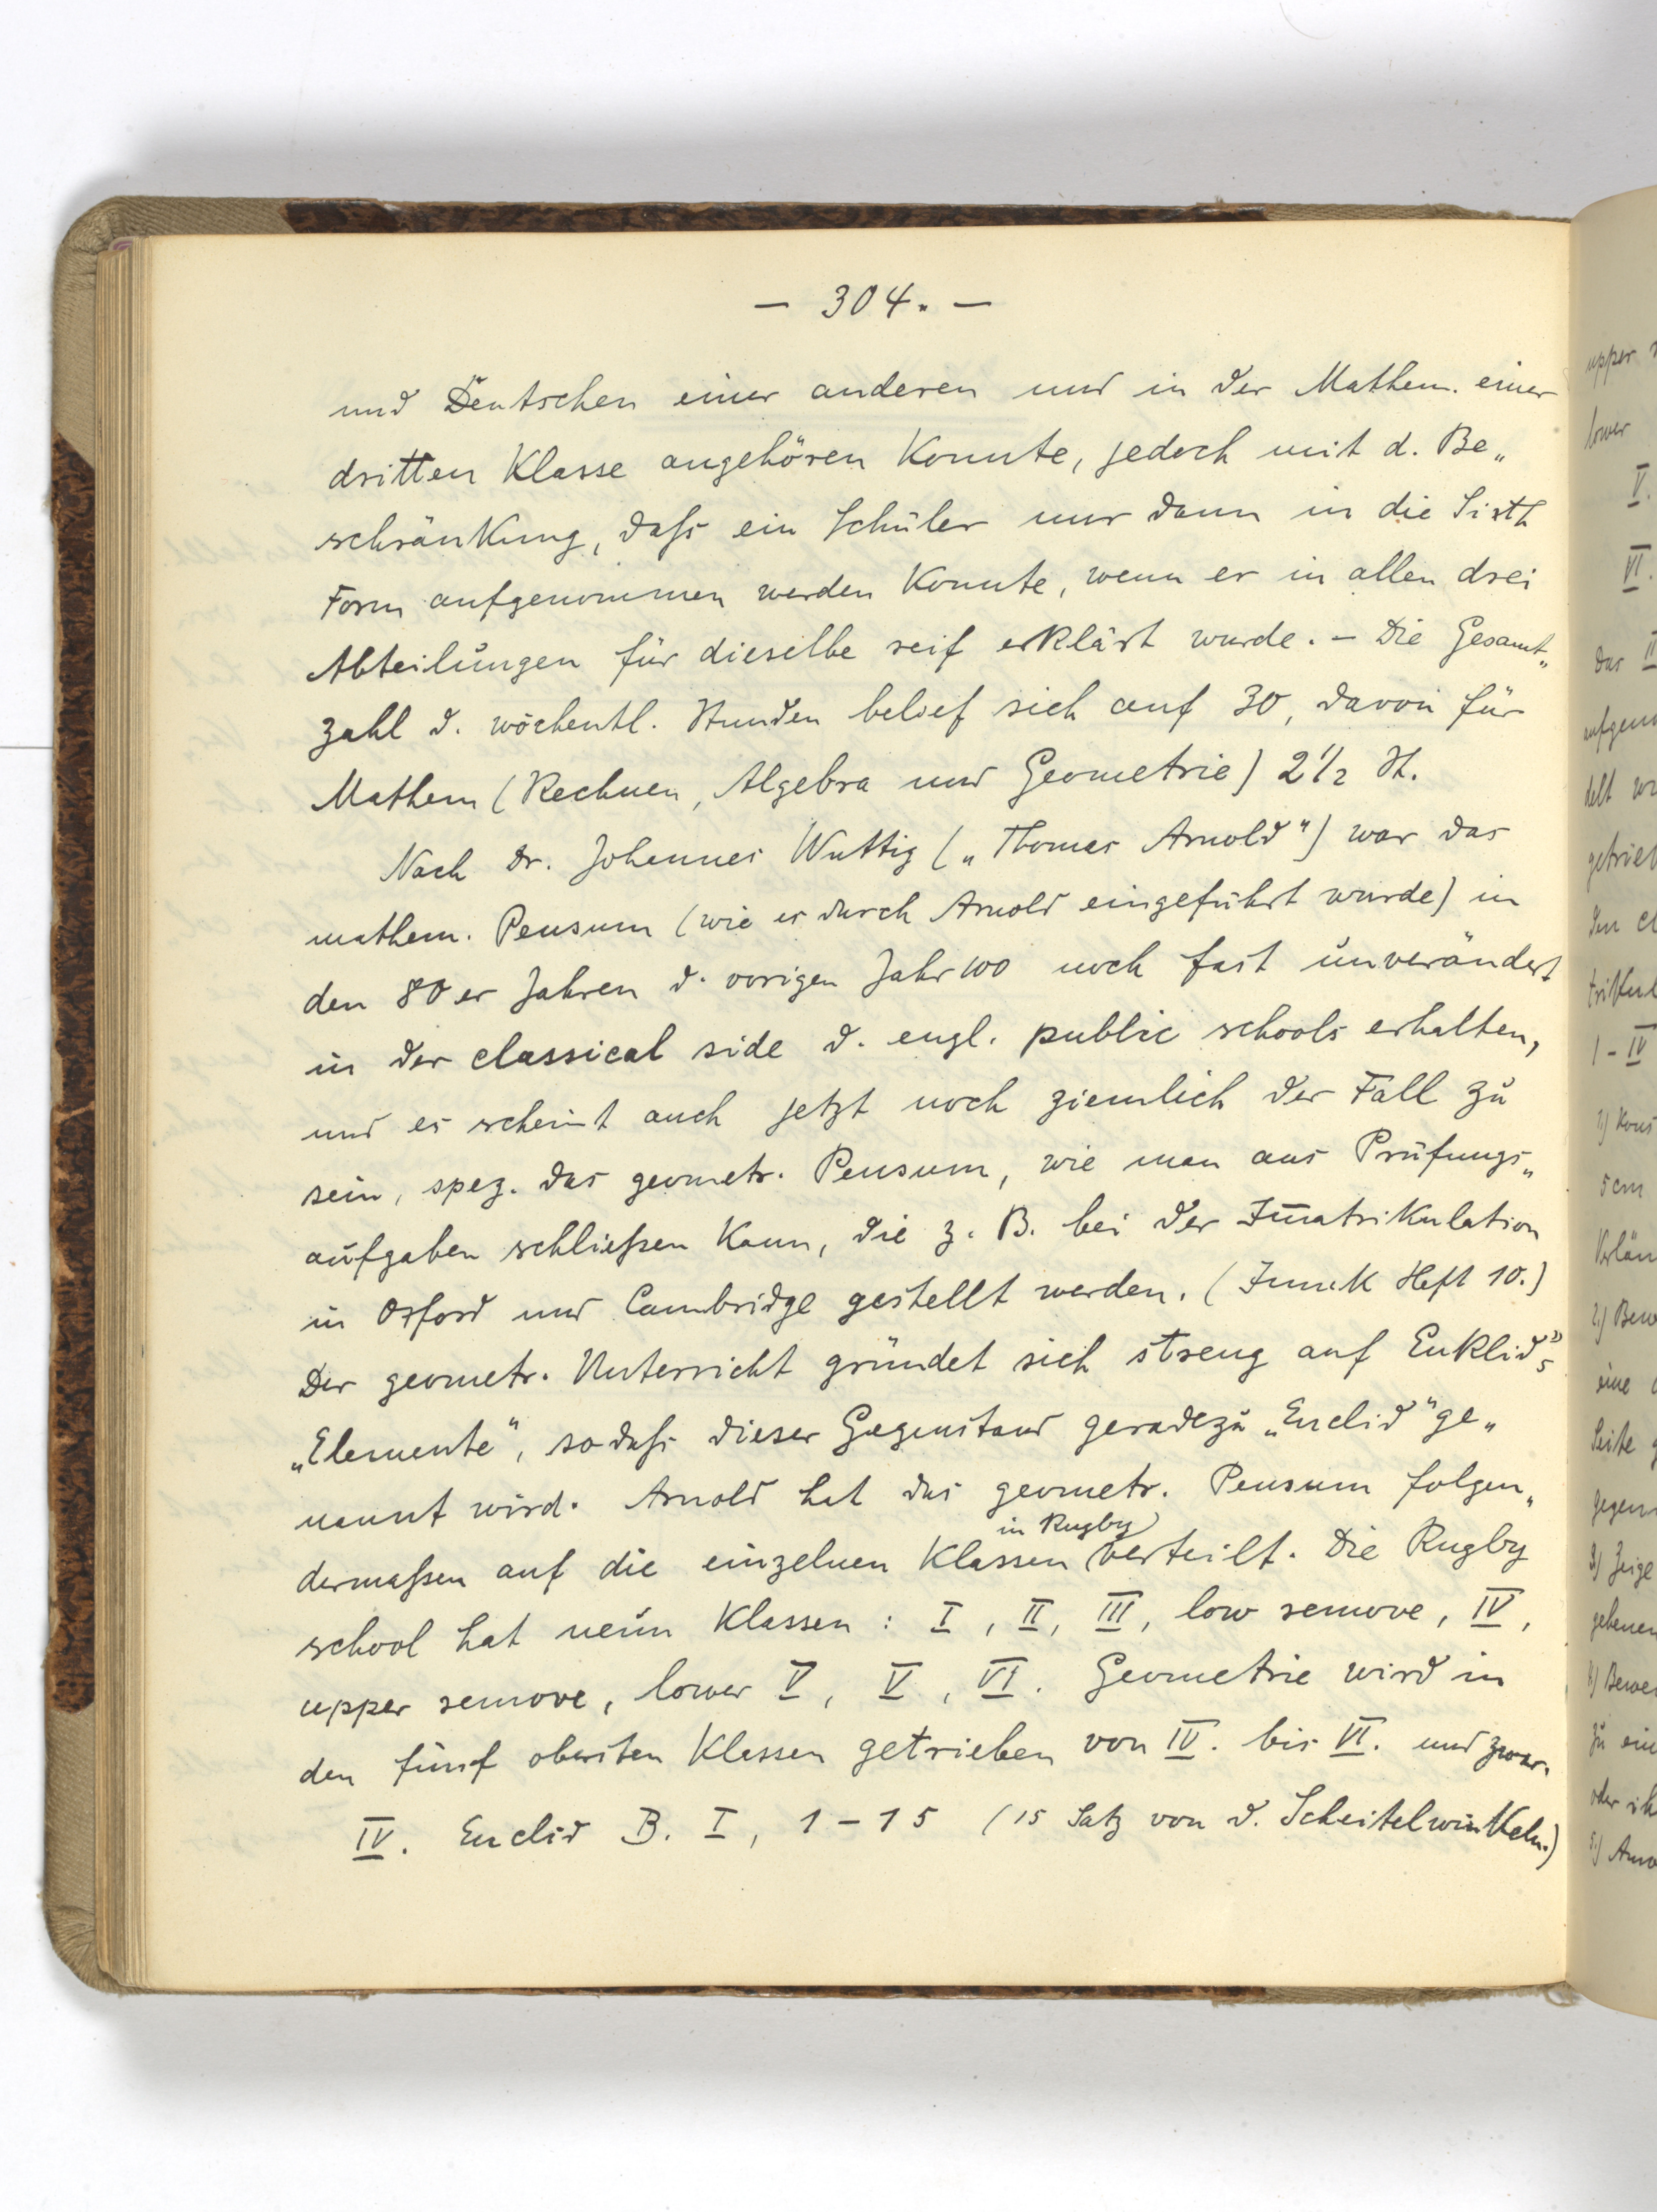 — 304. —
und Deutschen einer anderen und in der Mathem. einer
dritten Klasse angehören konnte, jedoch mit d. Be„
schränkung, daß ein Schüler nur dann in die Sixth
Form aufgenommen werden konnte, wenn er in allen drei
Abteilungen für dieselbe reif erklärt wurde. – Die Gesamt„
zahl d. wöchentl. Stunden belief sich auf 30, davon für
Mathem (Rechnen, Algebra und Geometrie) 2 1/2 St.
Nach Dr. Johannes Wuttig („Thomas Arnold") war das
mathem. Pensum (wie es durch Arnold eingeführt wurde) in
den 80er Jahren d. vorigen Jahr100 noch fast unverändert
in der classical side d. engl. public schools erhalten,
und es scheint auch jetzt noch ziemlich der Fall zu
sein, spez. das geometr. Pensum, wie man aus Prüfungs„
aufgaben schließen kann, die z. B. bei der Im̅atrikulation
in Oxford und Cambridge gestellt werden. (Imuk Heft 10.)
Der geometr. Unterricht gründet sich streng auf Euklids
„Elemente", sodaß dieser Gegenstand geradezu „Euclid" ge„
nannt wird. Arnold hat das geometr. Pensum folgen„
in Rugby
dermaßen auf die einzelnen Klassen verteilt. Die Rugby
school hat neun Klassen: I, II, III, low remove, IV,
upper remove, lower V, V, VI. Geometrie wird in
den fünf obersten Klassen getrieben von IV. bis VI. und zwar.
IV. Euclid B. I, 1–15 (15 Satz von d. Scheitelwinkeln.)
upper
lower
V.
VI.
Das II
1–IV
5 cm
eine
Seite
3) Zeige